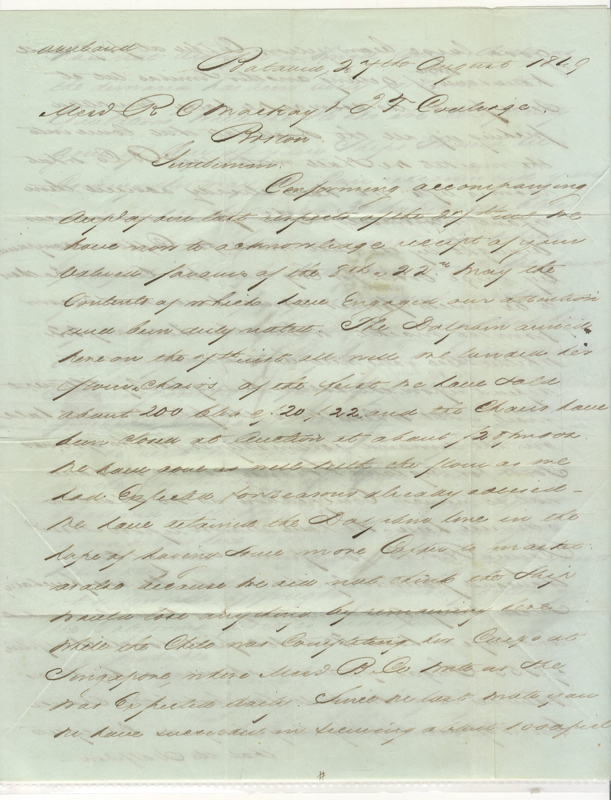 overland
Batavia 27th August 1849
Mess R C Mackay & J T Coolidge
Boston
Gentlemen
Confirming accompanying
our last respects of the We
have now to acknowledge receipt of your
valued favours of the 8th & 22nd May the
Contents of which have Engaged our attention
and been duly noted. The Dolphin arrived
here on the 7th inst all well. We landed her
flour, chairs, of the first We have sold
about 200 bls @ 20, 22 and the Chairs have
been closed at Auction at about
We have done as well with the flour as we
had Expected for reasons already advised
We have detained the Dolphin here in the
hope of having some more Coffee in market
as also because We did not think the Ship
would lose anything by remaining here
while the Chile was Completing her Cargo at
Singapore, where Mess B. Co write us she
was Expected daily. Since We last wrote you
We have succeeded in securing about 1000 pls